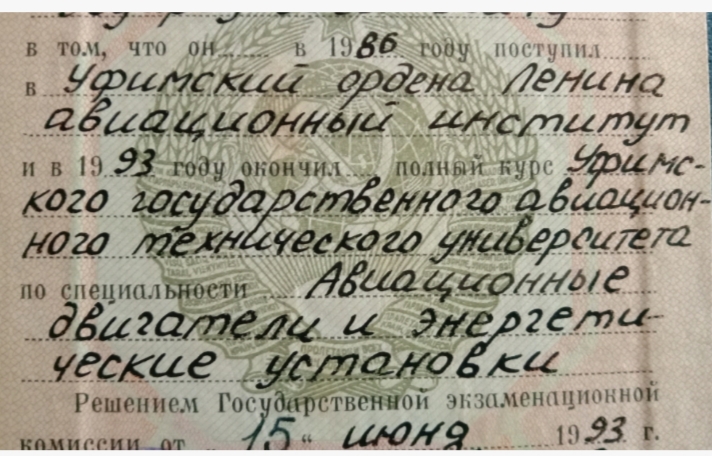 в том, что он в 1986 году поступил
в Уфимский ордена Ленина
авиационный институт
и в 1993 году окончил полный курс Уфимс-
кого государственного авиацион-
ного технического университета
по специальности Авиационные
двигатели и энергети-
ческие установки
Решением Государственной экзаменационной
комиссии от „15“ июня 1993 г.